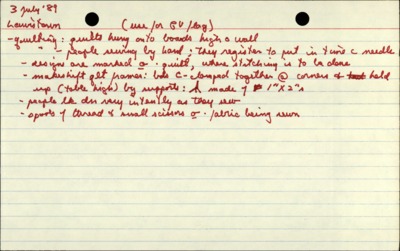 3 July '89
Lewistown (use for GV/log)
- quilting: quilts hung onto boards high on wall
" - people sewing by hand; they register to put in time c needle
- designs are marked on quilt, where stitching is to be done
- makeshift qlt frames: bds C-clamped together @ corners & held
up (table high) by supports: made of 1" X 2"s
- people lk dn very intently as they sew
- spools of thread & small scissors on fabric being sewn